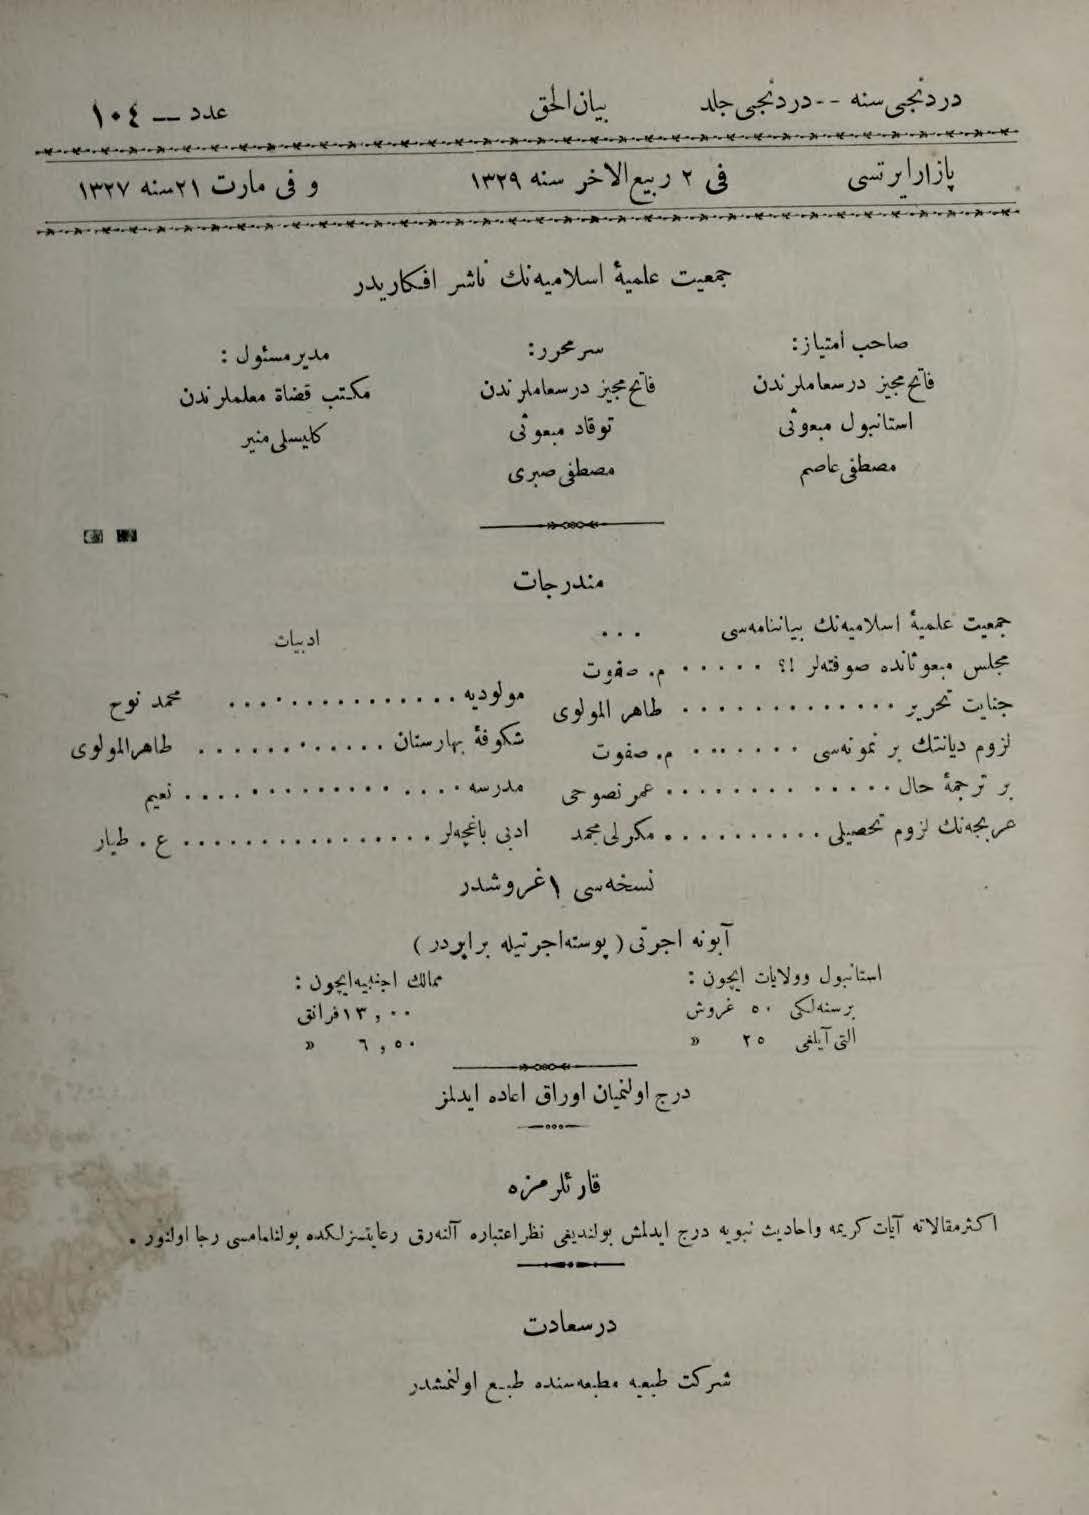 دردنجی سنه -- دردنجی جلد بیان الحق عدد — ١٠٤
پازار ایرتسی فی ٢ ربیع الاخر سنه ١٣٢٩ و فی مارت ٢١ سنه ١٣٢٧
جمعیت علمیهٔ اسلامیه‌نك ناشر افکاریدر
صاحب امتیاز:
فاتح مجیز درسعاملرندن
استانبول مبعوثی
مصطفی عاصم
سر محرر:
فاتح مجیز درسعاملرندن
توقاد مبعوثی
مصطفی صبری
مدیر مسئول :
مکتب قضاة معلملرندن
کلیسلی منیر
مندرجات
جمعیت علمیهٔ اسلامیه‌نك بیاننامه‌سی ...
مجلس مبعوثانده صوفته‌لر !؟ ..... م. صفوت
جنایت تحریر ............. طاهر المولوی
لزوم دیانتك بر نمونه‌سی ........ م. صفوت
بر ترجمهٔ حال ............. عمر نصوحی
عربجه‌نك لزوم تحصیلی ........... مکرلی محمد
ادبیات
مولودیه ................ محمد نوح
شکوفهٔ بهارستان ............ طاهر المولوی
مدرسه ................ نعیم
ادبی باغچه‌لر ................ ع . طیار
نسخه‌سی ١ غروشدر
آبونه اجرتی ( پوسته اجرتیله برابردر )
استانبول وولایات ایچون :
برسنه‌لکی ٥٠ غروش
التی آیلغی ٢٥ »
ممالك اجنبیه ایچون :
١٣,٠٠ فرانق
٦,٥٠ »
درج اولنمیان اوراق اعاده ایدلمز
قارئلرمزه
اکثر مقالاته آیات کریمه واحادیث نبویه درج ایدلمش بولندیغی نظر اعتباره آلنه‌رق رعایتسزلکده بولنلمامسی رجا اولنور .
درسعادت
شرکت طبعیه مطبعه‌سنده طبع اولنمشدر